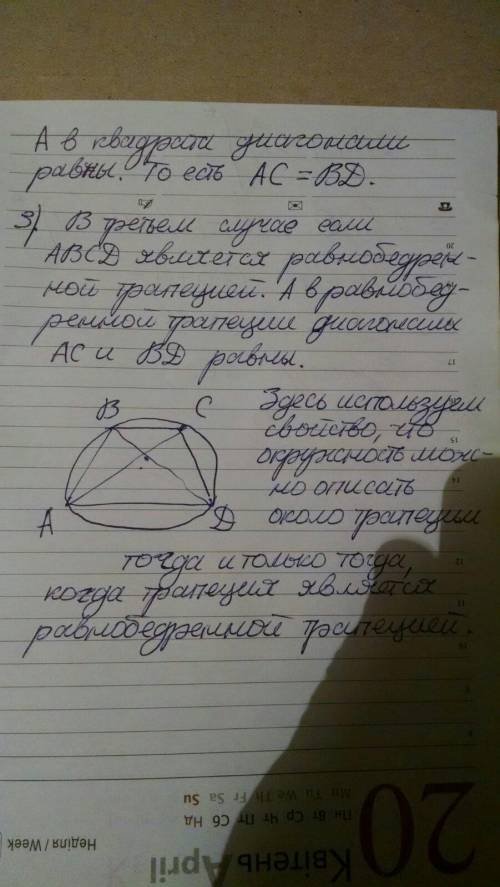 А в квадрата диагонали
равны. То есть AC = BD.
3) В третьем случае если
ABCD является равнобедрен-
ной трапецией. А в равнобед-
ренной трапеции диагонали
AC и BD равны.
B C
A D
Здесь используем
свойство, что
окружность мож-
но описать
около трапеции
тогда и только тогда,
когда трапеция является
равнобедренной трапецией.
20
17
15
14
12
11
10
9
8
Mo Tu We Th Fr Sa Su
Пн Вт Ср Чт Пт Сб Нд
20
Неділя / Week
Квітень April